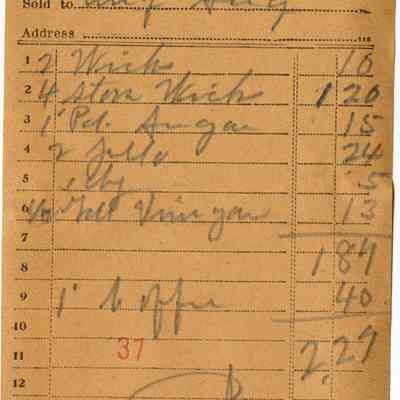 Sold to
Address
1 2 Wick 10
2 4 Stove Wick 1 20
3 1 Sugar 15
4 2 Jello 24
5 5
6 Vinegar 13
7
8 1 84
9 1 Coffee 40
10
11 37 2.27
12